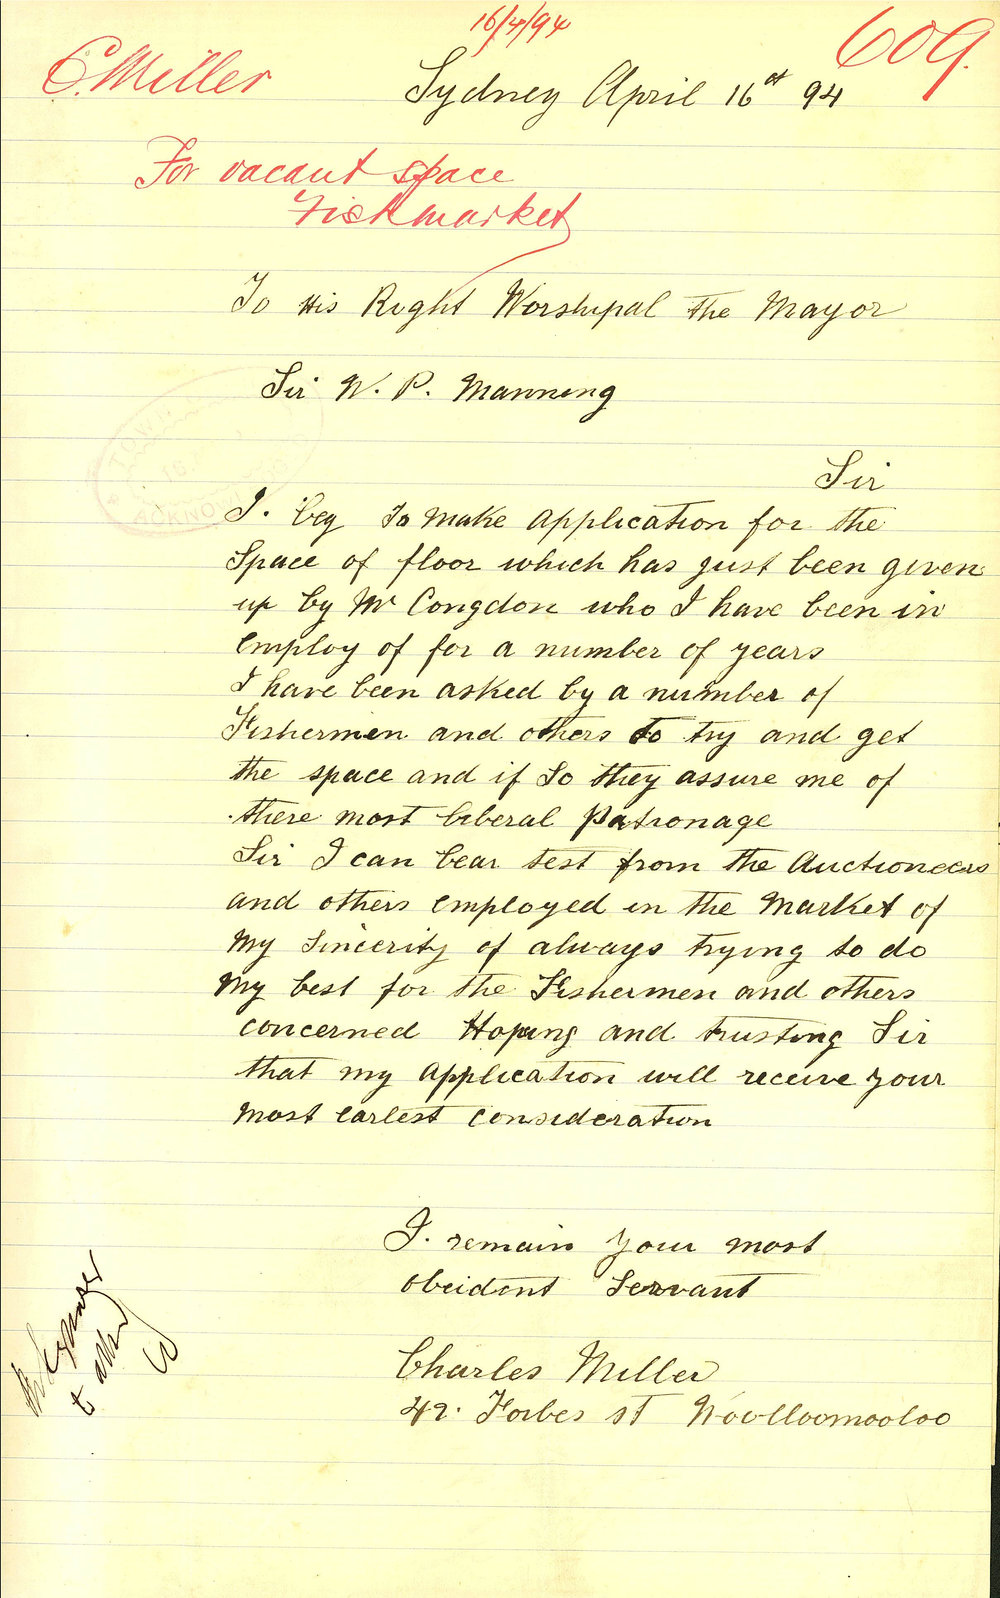 16/4/94
C. Miller
609.
Sydney April 16st 94
For vacant space
Fishmarket
To His Right Worshipal the Mayor
Sir W. P. Manning
Sir
I. beg to make application for the
Space of floor which has just been given
up by Mr Congdon who I have been in
employ of for a number of years
I have been asked by a number of
Fishermen and others to try and get
the space and if so they assure me of
there most liberal Patronage
Sir I can bear test from the Auctioneers
and others employed in the Market of
My Sincerity of always trying to do
My best for the Fishermen and others
concerned Hoping and trusting Sir
that my application will receive your
most earlest consideration
I. remain your most
obeident Servant
Charles Miller
42. Forbes st Woolloomooloo
TOWN
ACKNOW